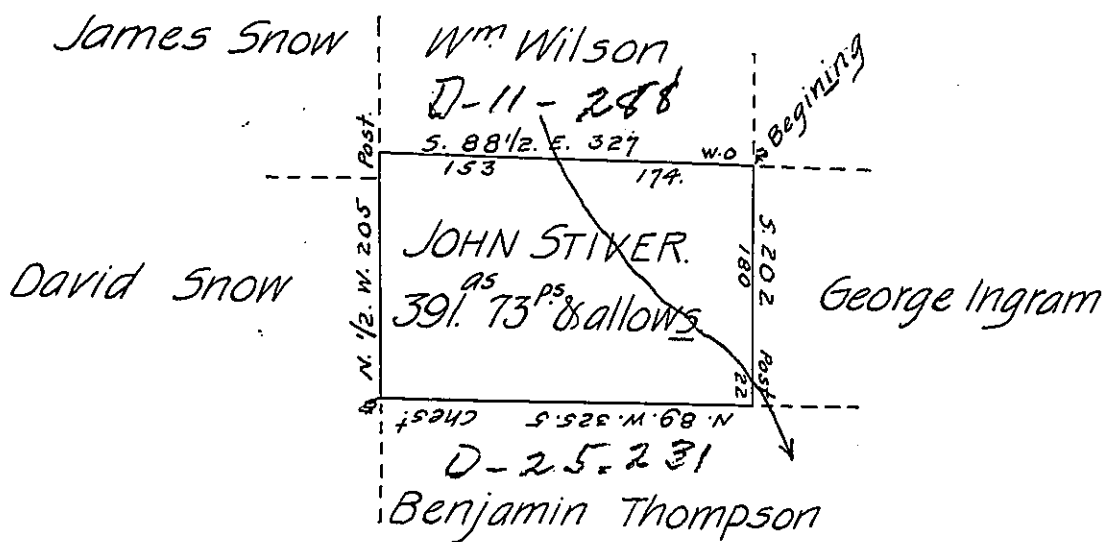 James Snow
Wm Wilson
D-11-288
Begining
Post.
S. 88 1/2. E. 327
W.O
153
174.
N. 1/2. W. 205
JOHN STIVER.
391.as 73ps & allows
S. 202
180
Post
22
David Snow
George Ingram
Chest
N. 89. W. 325.5
D-25-231
Benjamin Thompson